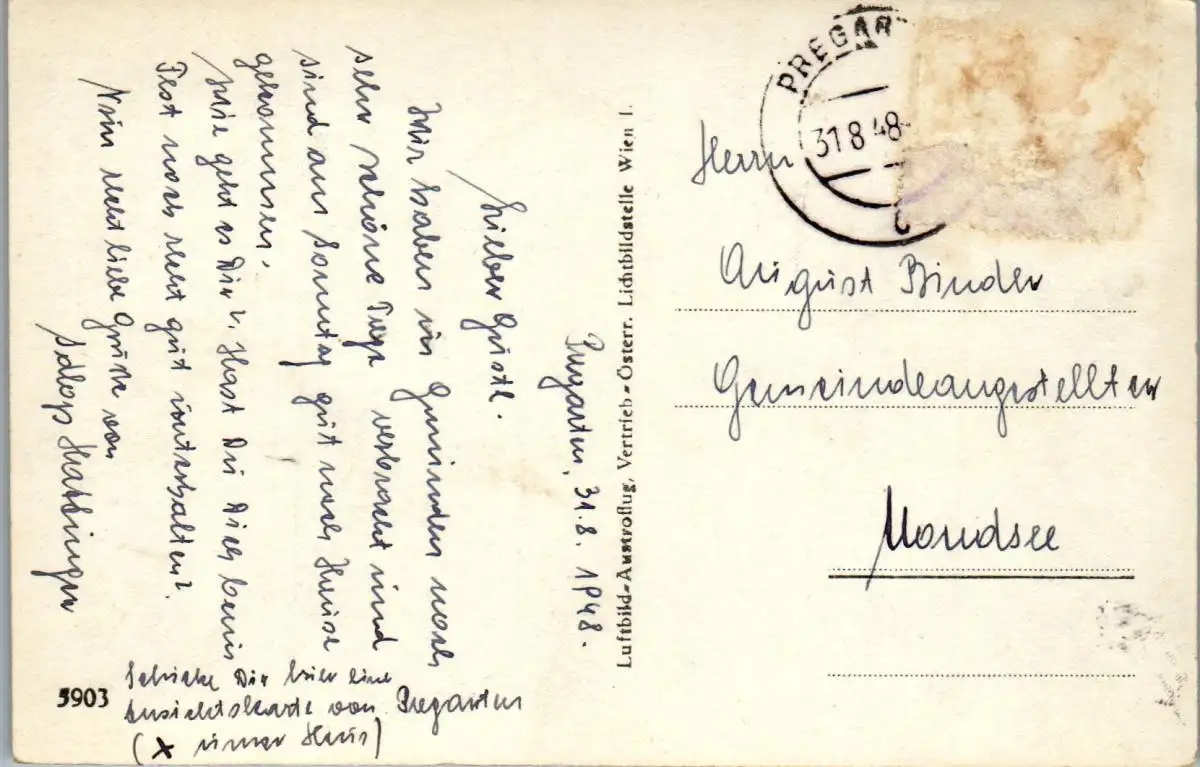 Pregarten, 31.8.1948.
Lieber Gustl.
Wir haben in Gmunden noch
sehr schöne Tage verbracht und
sind am Sonntag gut nach Hause
gekommen.
Wie geht es Dir? Hast Du Dich beim
Fest noch recht gut unterhalten?
Nun recht liebe Grüße von
Schicke Dir hier eine
Ansichtskarte von Pregarten
(x unser Haus)
5903
Luftbild-Austroflug, Vertrieb-Österr. Lichtbildstelle Wien 1.
PREGAR
31 8 48
Herrn
August Binder
Gemeindeangestellter
Mondsee